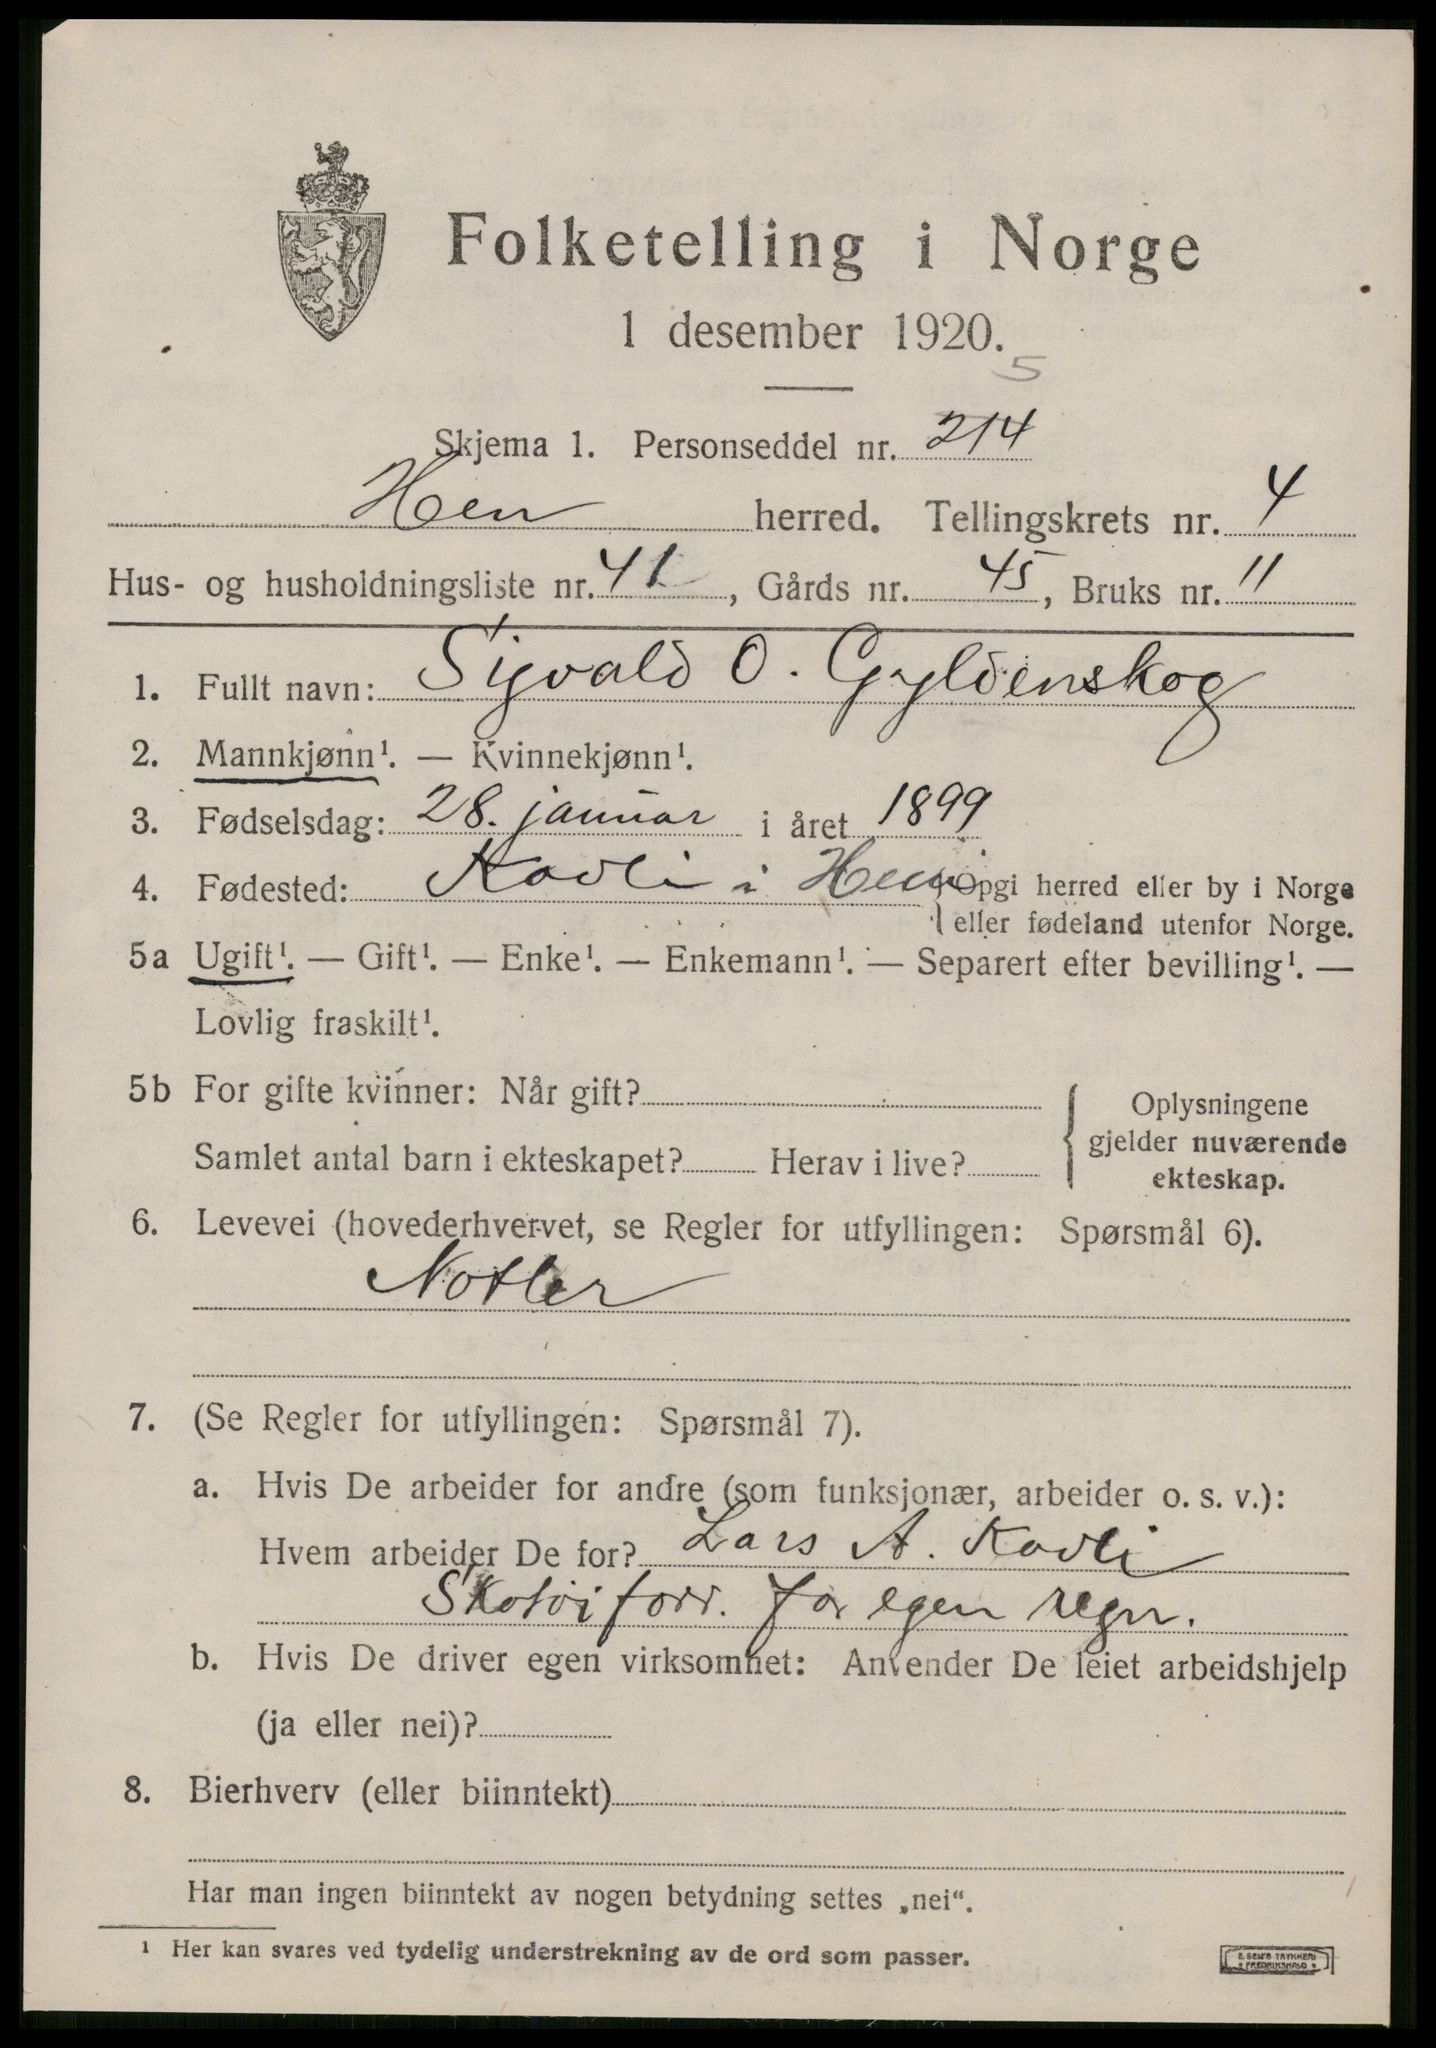 Folketelling i Norge
1 desember 1920.
5
Skjema 1. Personseddel nr. 214
Hen herred. Tellingskrets nr. 4
Hus- og husholdningsliste nr. 41, Gårds nr. 45, Bruks nr. 11
1. Fullt navn: Sigvald O. Gyldenskog
2. Mannkjønn¹. — Kvinnekjønn¹.
3. Fødselsdag: 28. januar i året 1899
4. Fødested: Kavli i Hen {Opgi herred eller by i Norge
eller fødeland utenfor Norge.
5a Ugift¹. — Gift¹. — Enke¹. — Enkemann¹. — Separert efter bevilling¹. —
Lovlig fraskilt¹.
5b For gifte kvinner: Når gift?
Samlet antal barn i ekteskapet? Herav i live?
{ Oplysningene
gjelder nuværende
ekteskap.
6. Levevei (hovederhvervet, se Regler for utfyllingen: Spørsmål 6).
Notler
7. (Se Regler for utfyllingen: Spørsmål 7).
a. Hvis De arbeider for andre (som funksjonær, arbeider o. s. v.):
Hvem arbeider De for? Lars A. Kavli
Skotøiforr. for egen regn.
b. Hvis De driver egen virksomhet: Anvender De leiet arbeidshjelp
(ja eller nei)?
8. Bierhverv (eller biinntekt)
Har man ingen biinntekt av nogen betydning settes „nei“.
¹ Her kan svares ved tydelig understrekning av de ord som passer.
E. SEM'S TRYKKERI
FREDRIKSHALD